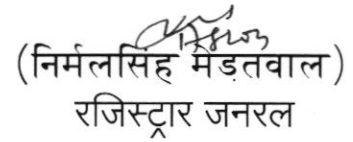 (निर्मलसिंह मेड़तवाल)
रजिस्ट्रार जनरल